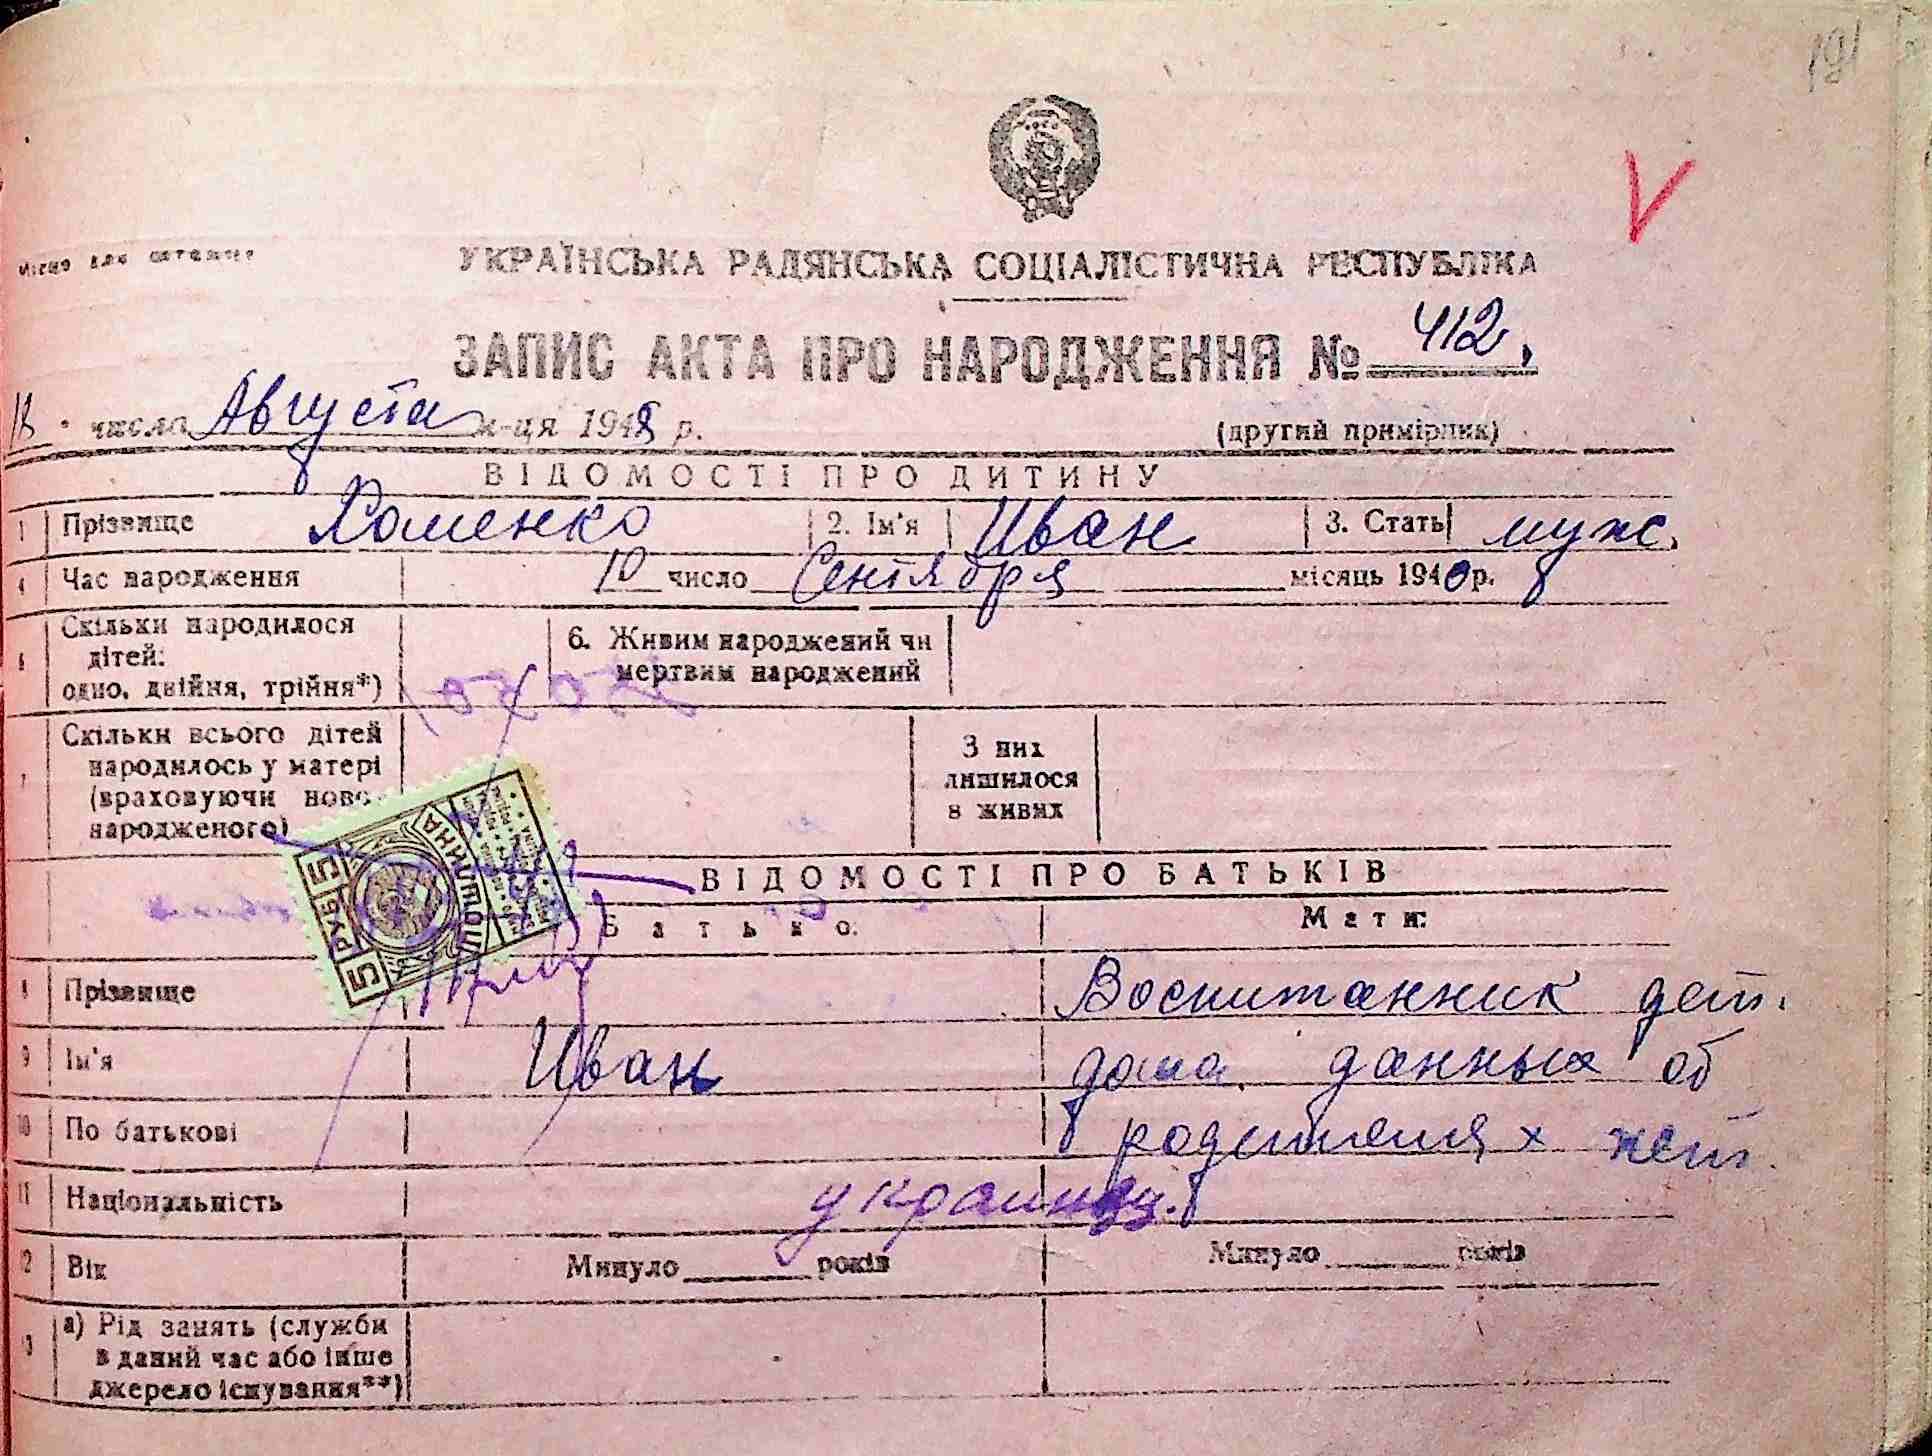 191
Місце для штампу
УКРАЇНСЬКА РАДЯНСЬКА СОЦІАЛІСТИЧНА РЕСПУБЛІКА
ЗАПИС АКТА ПРО НАРОДЖЕННЯ № 412
18 число Августа м-ця 1948 р. (другий примірник)
ВІДОМОСТІ ПРО ДИТИНУ
1 Прізвище Хоменко 2. Ім'я Иван 3. Стать муж.
4 Час народження 10 число Сентября місяць 1940 р.
5 Скільки народилося дітей: одно, двійня, трійня*) 6. Живим народжений чи мертвим народжений
7 Скільки всього дітей народилось у матері (враховуючи новонародженого) З них лишилося в живих
5 РУБ 5 ПОШЛИНА
ВІДОМОСТІ ПРО БАТЬКІВ
Батько: Мати:
8 Прізвище Воспитанник дет.
9 Ім'я Иван дома. данных об
10 По батькові родителях нет.
11 Національність украинец.
12 Вік Минуло років Минуло років
13 а) Рід занять (служби в даний час або інше джерело існування**)